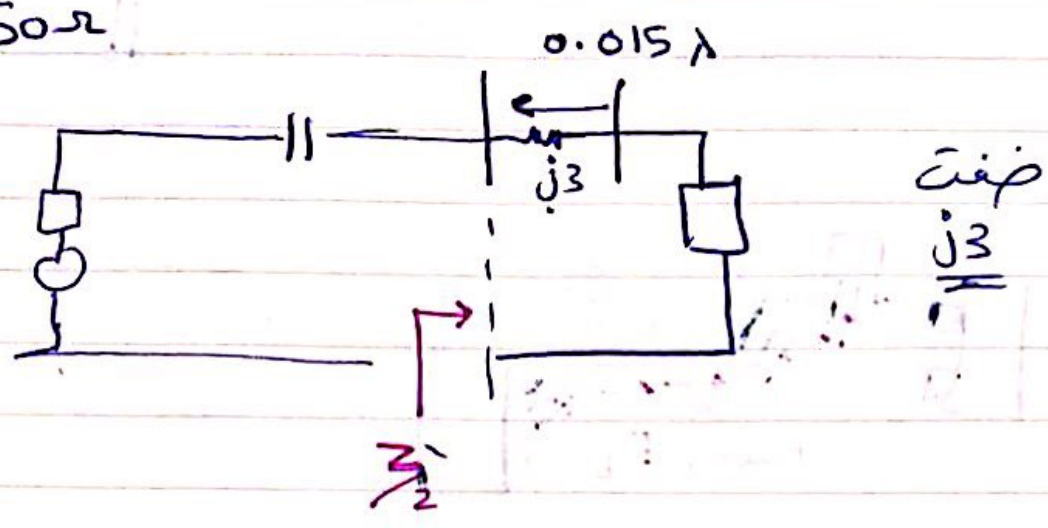 50Ω
0.015 λ
j3
ضفت
j3
Z₂`